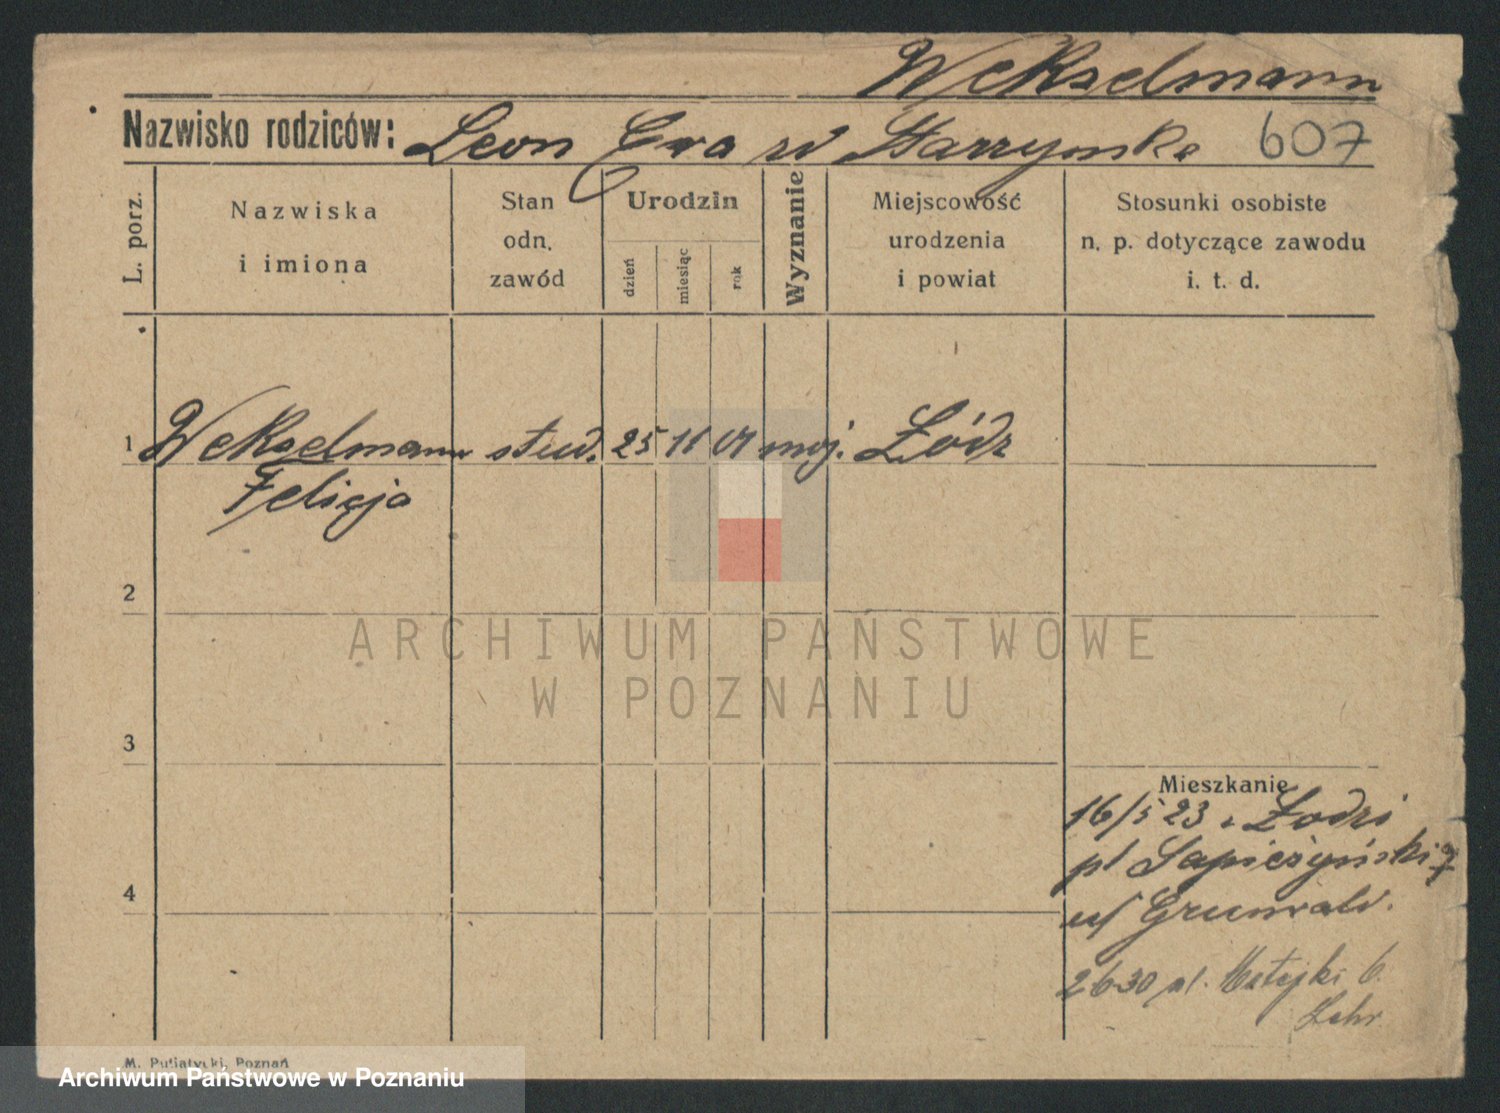 Wekselmann
Nazwisko rodziców: Leon Ewa 607
L. porz.
Nazwiska
i imiona
Stan
odn.
zawód
Urodzin
dzień
miesiąc
rok
Wyznanie
Miejscowość
urodzenia
i powiat
Stosunki osobiste
n. p. dotyczące zawodu
i. t. d.
1 Wekselmann stud. 25 11 01 moj. Łódz
Felicja
2
ARCHIWUM PAŃSTWOWE
W POZNANIU
3
Mieszkanie
16/5 23 z Łodzi
pl Sapieżyński 7
4
u/ Grunwald.
26 30 pl. Matejki 6.
M. Putiatycki, Poznań
Archiwum Państwowe w Poznaniu